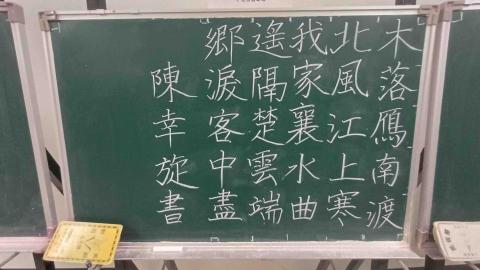 木落鴈南渡
北風江上寒
我家襄水曲
遙隔楚雲端
鄉淚客中盡
陳幸旋書